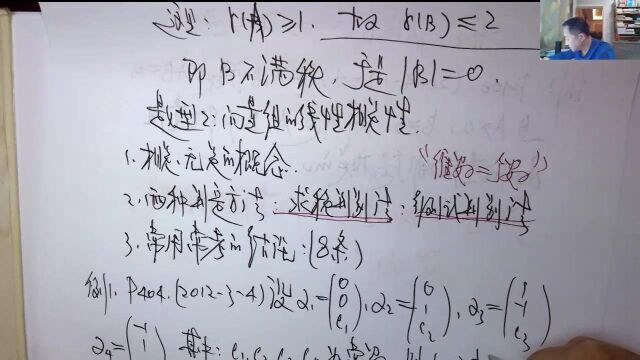 理: r(A)≥1. 故 r(B)≤2
即 B 不满秩, 于是 |B|=0.
题型2: 向量组的线性相关性.
1. 相关、无关的概念.
2. 两种判定方法: 求秩判别法; 行列式判别法
3. 常用常考的结论: (8条)
例1. P404. (2012-3-4) 设 α₁=(0 0 c₁), α₂=(0 1 c₂), α₃=(1 -1 c₃)
α₄=(-1 1 其中: c₁ c₂ c₃ c₄ 为常数